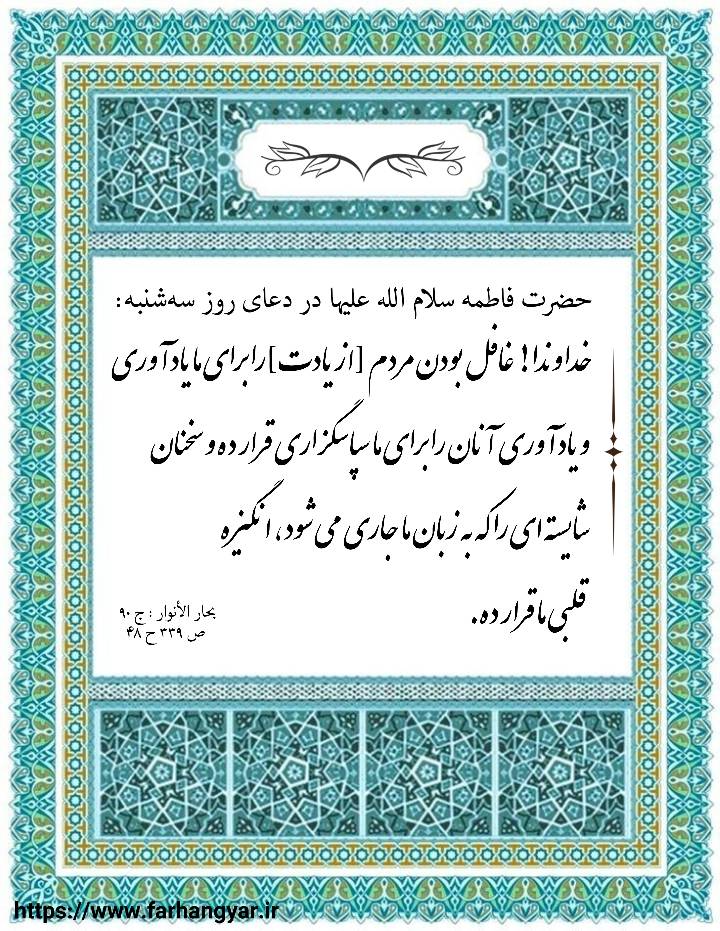 حضرت فاطمه سلام الله علیها در دعای روز سه‌شنبه:
خداوندا! غافل بودن مردم [از یادت] را برای ما یادآوری
و یادآوری آنان را برای ما سپاسگزاری قرار ده و سخنان
شایسته‌ای را که به زبان ما جاری می‌شود، انگیزه
قلبی ما قرار ده.
بحار الأنوار : ج ۹۰
ص ۳۳۹ ح ۴۸
https://www.farhangyar.ir